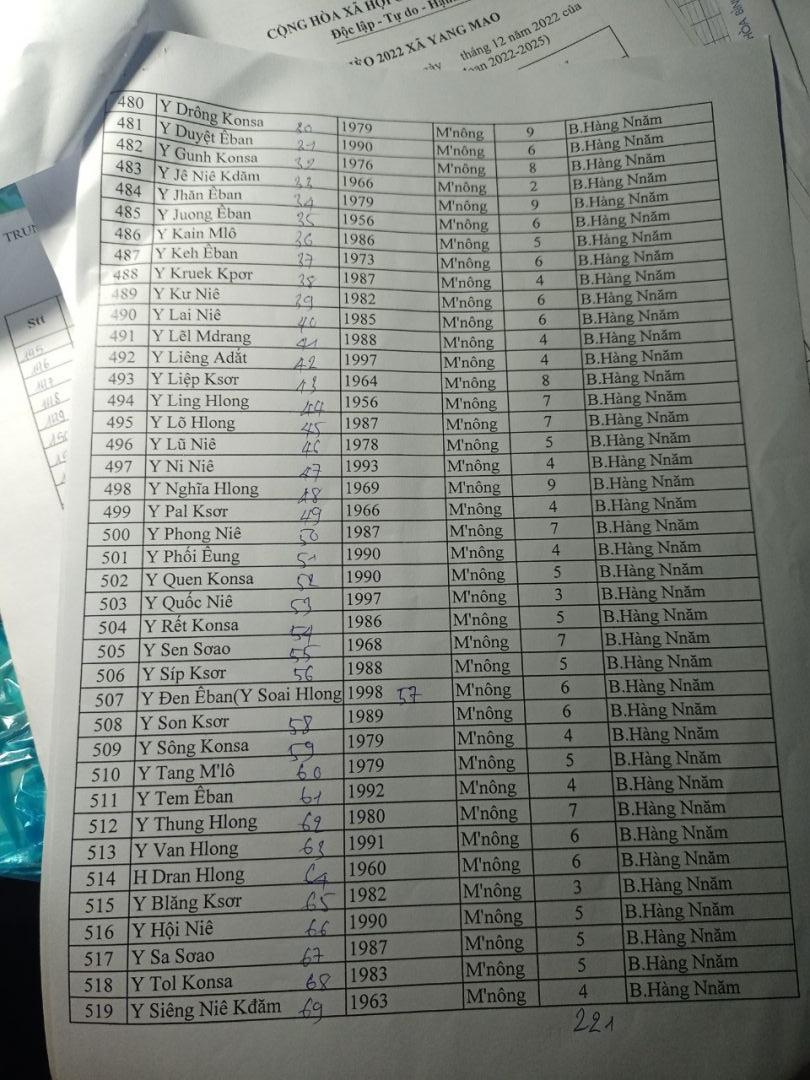 CỘNG HÒA XÃ HỘI
Độc lập - Tự do - Hạnh
2022 XÃ YANG MAO
tháng 12 năm 2022 của
2022-2025)
HÒA BÌN
TRUN
Stt
145
146
147
148
149
150
480 Y Drông Konsa 30 1979 M'nông 9 B.Hàng Nnăm
481 Y Duyệt Êban 31 1990 M'nông 6 B.Hàng Nnăm
482 Y Gunh Konsa 32 1976 M'nông 8 B.Hàng Nnăm
483 Y Jê Niê Kdăm 33 1966 M'nông 2 B.Hàng Nnăm
484 Y Jhăn Êban 34 1979 M'nông 9 B.Hàng Nnăm
485 Y Juong Êban 35 1956 M'nông 6 B.Hàng Nnăm
486 Y Kain Mlô 36 1986 M'nông 5 B.Hàng Nnăm
487 Y Keh Êban 37 1973 M'nông 6 B.Hàng Nnăm
488 Y Kruek Kpơr 38 1987 M'nông 4 B.Hàng Nnăm
489 Y Kư Niê 39 1982 M'nông 6 B.Hàng Nnăm
490 Y Lai Niê 40 1985 M'nông 6 B.Hàng Nnăm
491 Y Lẽl Mdrang 41 1988 M'nông 4 B.Hàng Nnăm
492 Y Liêng Adắt 42 1997 M'nông 4 B.Hàng Nnăm
493 Y Liệp Ksơr 43 1964 M'nông 8 B.Hàng Nnăm
494 Y Ling Hlong 44 1956 M'nông 7 B.Hàng Nnăm
495 Y Lõ Hlong 45 1987 M'nông 7 B.Hàng Nnăm
496 Y Lũ Niê 46 1978 M'nông 5 B.Hàng Nnăm
497 Y Ni Niê 47 1993 M'nông 4 B.Hàng Nnăm
498 Y Nghĩa Hlong 48 1969 M'nông 9 B.Hàng Nnăm
499 Y Pal Ksơr 49 1966 M'nông 4 B.Hàng Nnăm
500 Y Phong Niê 50 1987 M'nông 7 B.Hàng Nnăm
501 Y Phối Êung 51 1990 M'nông 4 B.Hàng Nnăm
502 Y Quen Konsa 52 1990 M'nông 5 B.Hàng Nnăm
503 Y Quốc Niê 53 1997 M'nông 3 B.Hàng Nnăm
504 Y Rết Konsa 54 1986 M'nông 5 B.Hàng Nnăm
505 Y Sen Sơao 55 1968 M'nông 7 B.Hàng Nnăm
506 Y Síp Ksơr 56 1988 M'nông 5 B.Hàng Nnăm
507 Y Đen Êban(Y Soai Hlong 1998 57 M'nông 6 B.Hàng Nnăm
508 Y Son Ksơr 58 1989 M'nông 6 B.Hàng Nnăm
509 Y Sông Konsa 59 1979 M'nông 4 B.Hàng Nnăm
510 Y Tang M'lô 60 1979 M'nông 5 B.Hàng Nnăm
511 Y Tem Êban 61 1992 M'nông 4 B.Hàng Nnăm
512 Y Thung Hlong 62 1980 M'nông 7 B.Hàng Nnăm
513 Y Van Hlong 63 1991 M'nông 6 B.Hàng Nnăm
514 H Dran Hlong 64 1960 M'nông 6 B.Hàng Nnăm
515 Y Blăng Ksơr 65 1982 M'nông 3 B.Hàng Nnăm
516 Y Hội Niê 66 1990 M'nông 5 B.Hàng Nnăm
517 Y Sa Sơao 67 1987 M'nông 5 B.Hàng Nnăm
518 Y Tol Konsa 68 1983 M'nông 5 B.Hàng Nnăm
519 Y Siêng Niê Kđăm 69 1963 M'nông 4 B.Hàng Nnăm
221